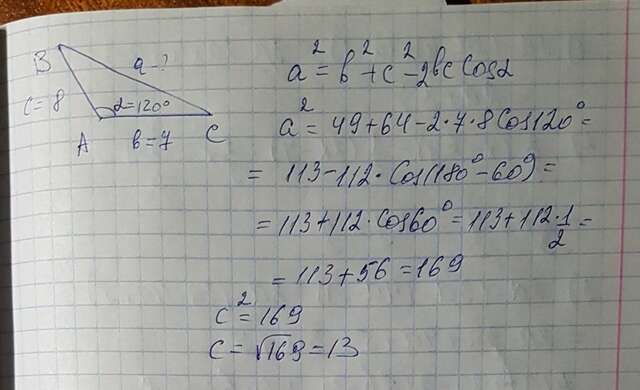 B
a - ?
c = 8
α = 120°
A
b = 7
C
a² = b² + c² - 2bc cosα
a² = 49 + 64 - 2·7·8 cos120° =
= 113 - 112 · cos(180° - 60°) =
= 113 + 112 · cos60° = 113 + 112 · 1/2 =
= 113 + 56 = 169
c² = 169
c = √169 = 13